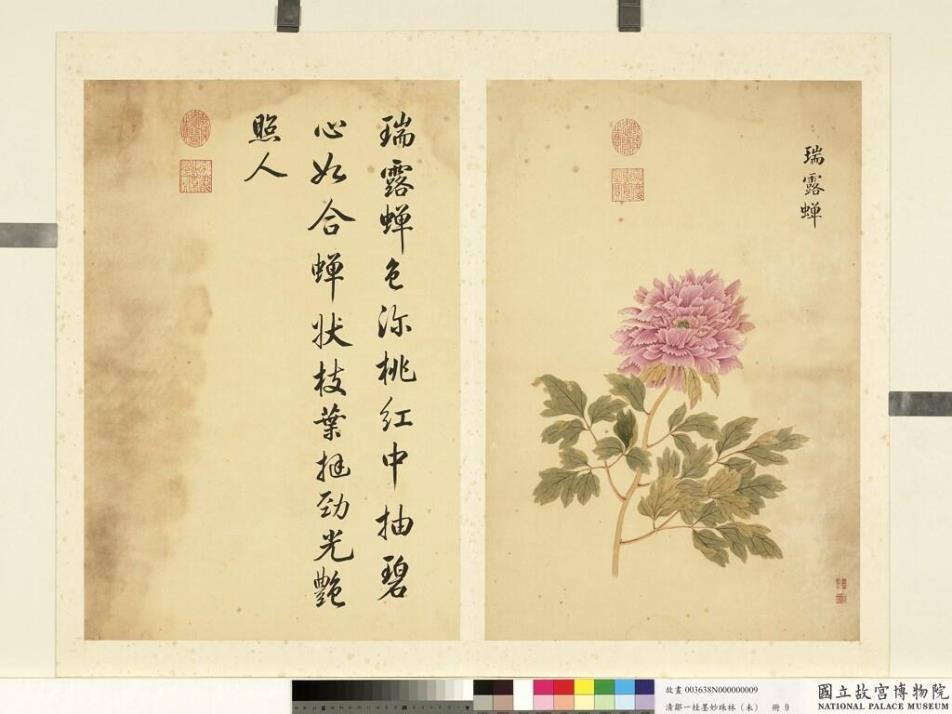 瑞露蟬
瑞露蟬色深桃紅中抽碧
心如合蟬狀枝葉挺勁光艷
照人
故畫 003638N000000009
清鄒一桂墨妙珠林（未） 冊 9
國立故宮博物院
NATIONAL PALACE MUSEUM